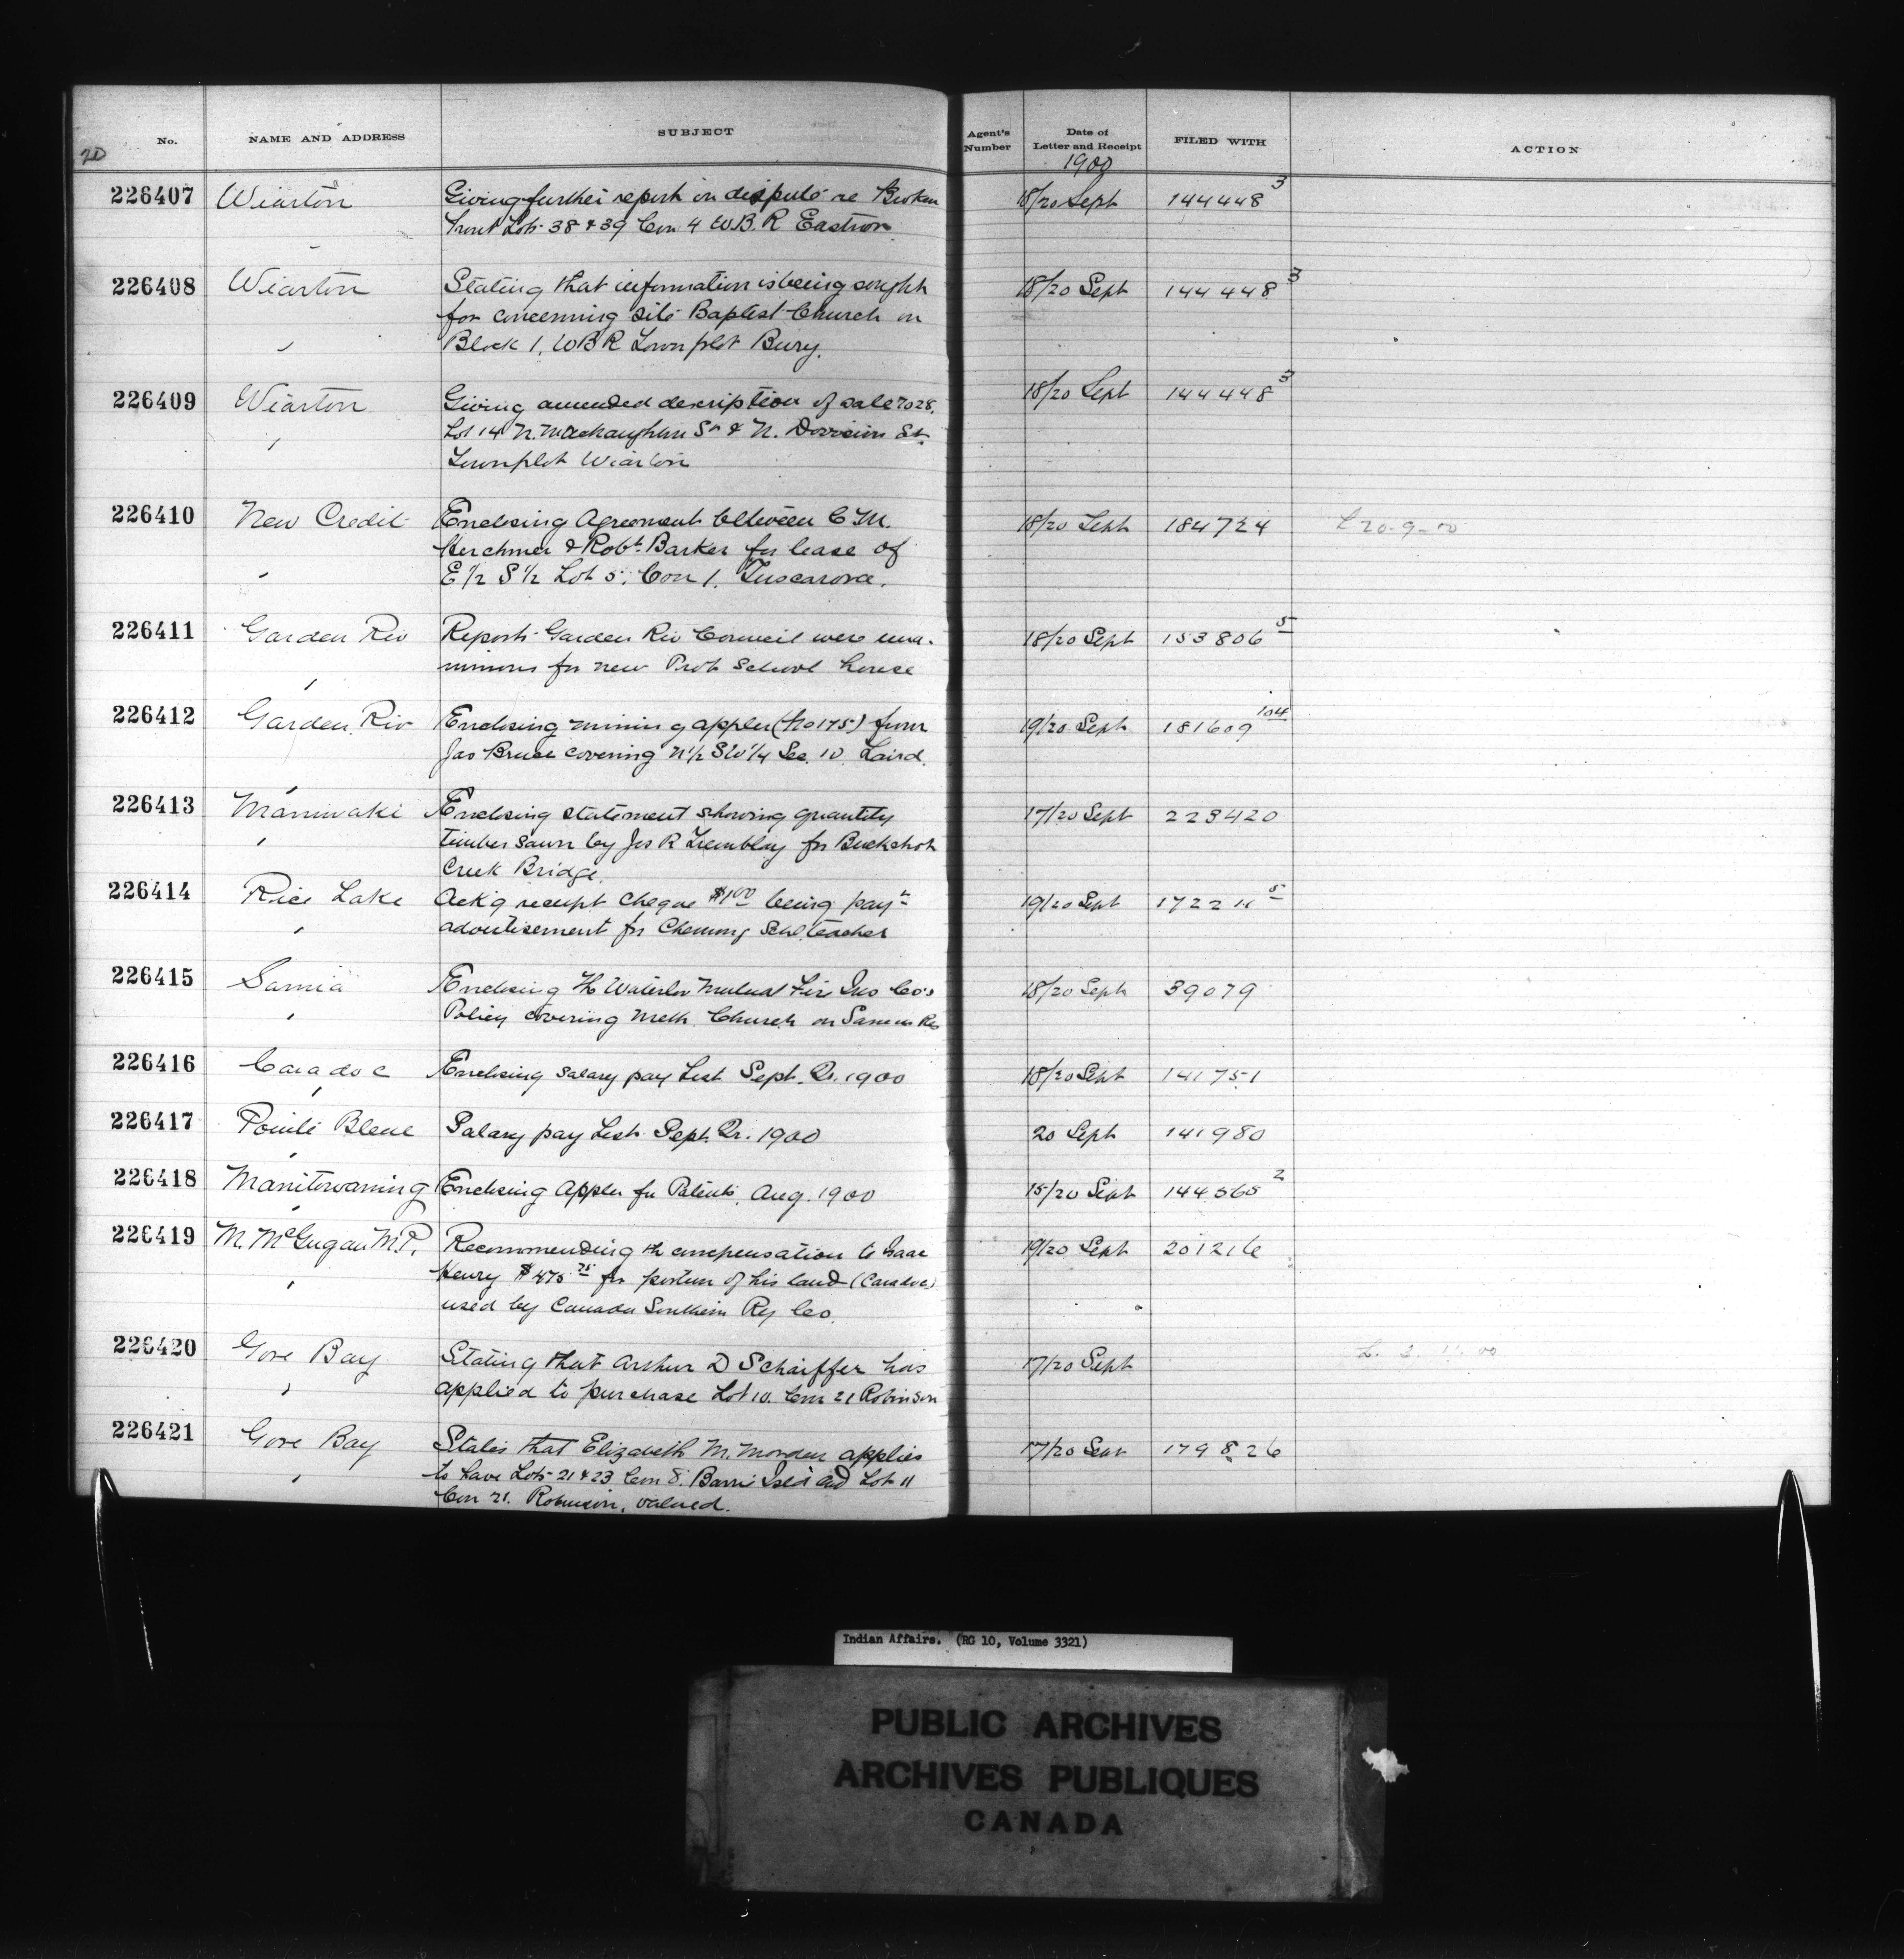 No. NAME AND ADDRESS SUBJECT Agent's Number Date of Letter and Receipt FILED WITH ACTION
20 1900
226407 Wiarton Giving further report in dispute re Broken 18/20 Sept 144448 3
front Lots 38 & 39 Con 4 W.B.R Eastnor
226408 Wiarton Stating that information is being sought 18/20 Sept 144448 3
for concerning site Baptist Church on
Block 1, WBR Townplot Bury.
226409 Wiarton Giving amended description of sale 7028, 18/20 Sept 144448 3
Lot 14 N. & N. Division St.
Townplot Wiarton
226410 New Credit Enclosing Agreement between C M. 18/20 Sept 184724 L 20-9-00
Herchmer & Robt. Barker for lease of
E 1/2 S 1/2 Lot 5, Con 1. Tuscarora.
226411 Garden Riv Reports Garden Riv Council were una- 18/20 Sept 153806 5
nimous for new Prot School house
226412 Garden Riv Enclosing mining appln (No 175) from 19/20 Sept 181609 104
Jas Bruce covering N 1/2 SW 1/4 Sec. 10. Laird.
226413 Maniwaki Enclosing statement showing quantity 17/20 Sept 223420
timber sawn by Jos R Tremblay for Buckshot
Creek Bridge.
226414 Rice Lake Ackg receipt cheque $1.00 being payt 19/20 Sept
advertisement for Chemong Schl. teacher
226415 Sarnia Enclosing the Waterloo Mutual Fire Ins Co's 18/20 Sept 39079
Policy covering Meth. Church on Sarnia Res
226416 Caradoc Enclosing salary pay List Sept. Qr. 1900 18/20 Sept 141751
226417 Pointe Bleue Salary pay List Sept. Qr. 1900 20 Sept 141980
226418 Manitowaning Enclosing Appln for Patents, Aug. 1900 15/20 Sept 144565 2
226419 M. McGugan M.P. Recommending the compensation to Isaac 19/20 Sept 201216
Henry $475 75 for portion of his land (Caradoc)
used by Canada Southern Ry Co.
226420 Gore Bay Stating that Arthur D Schaiffer has 17/20 Sept
applied to purchase Lot 10. Con 21 Robinson
226421 Gore Bay States that Elizabeth M. Morden applies 17/20 Sept 179826
to have Lots 21 & 23 Con 8. Barrie Isld and Lot 11
Con 21. Robinson, valued.
Indian Affairs. (RG 10, Volume 3321)
PUBLIC ARCHIVES
ARCHIVES PUBLIQUES
CANADA